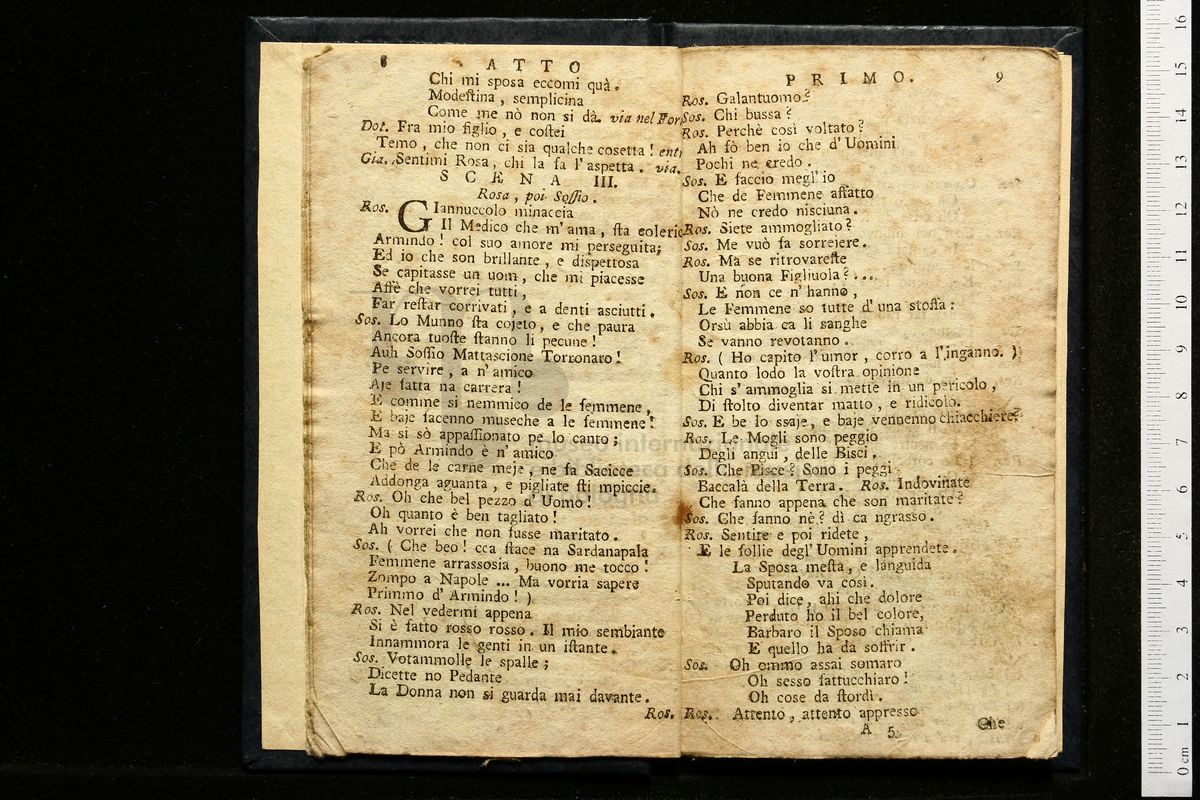 8 ATTO
Chi mi sposa eccomi quà.
Modeſtina, semplicina
Come me nò non si dà. via nel For
Dot. Fra mio figlio, e coſtei
Temo, che non ci sia qualche cosetta! ent
Gia. Sentimi Rosa, chi la fa l'aspetta. via.
SCENA III.
Rosa, poi Soſſio.
Ros. GIannuccolo minaccia
Il Medico che m'ama, ſta coleric
Armindo! col suo amore mi perseguita;
Ed io che son brillante, e dispettosa
Se capitasse un uom, che mi piacesse
Affè che vorrei tutti,
Far reſtar corrivati, e a denti asciutti.
Sos. Lo Munno ſta cojeto, e che paura
Ancora tuoſte ſtanno li pecune!
Auh Soſſio Mattascione Torronaro!
Pe servire, a n'amico
Aje fatta na carrera!
E comme si nemmico de le femmene,
E baje facenno museche a le femmene!
Ma si sò appaſſionato pe lo canto;
E pò Armindo è n'amico
Che de le carne meje, ne fa Sacicce
Addonga aguanta, e pigliate ſti mpiccie.
Ros. Oh che bel pezzo d'Uomo!
Oh quanto è ben tagliato!
Ah vorrei che non fusse maritato.
Sos. ( Che beo! cca ſtace na Sardanapala
Femmene arrassosia, buono me tocco!
Zompo a Napole ... Ma vorria sapere
Primmo d'Armindo! )
Ros. Nel vedermi appena
Si è fatto rosso rosso. Il mio sembiante
Innammora le genti in un iſtante.
Sos. Votammolle le spalle;
Dicette no Pedante
La Donna non si guarda mai davante.
Ros.
PRIMO. 9
Ros. Galantuomo?
Sos. Chi bussa?
Ros. Perchè così voltato?
Ah fò ben io che d'Uomini
Pochi ne credo.
Sos. E faccio megl'io
Che de Femmene affatto
Nò ne credo nisciuna.
Ros. Siete ammogliato?
Sos. Me vuò fa sorrejere.
Ros. Ma se ritrovareſte
Una buona Figliuola?....
Sos. E non ce n'hanno,
Le Femmene so tutte d'una stoffa:
Orsù abbia ca li sanghe
Se vanno revotanno.
Ros. ( Ho capito l'umor, corro a l'inganno. )
Quanto lodo la voſtra opinione
Chi s'ammoglia si mette in un pericolo,
Di ſtolto diventar matto, e ridicolo.
Sos. E be lo ssaje, e baje vennenno chiacchiere?
Ros. Le Mogli sono peggio
Degli angui, delle Bisci.
Sos. Che Pisce? Sono i peggi
Baccalà della Terra. Ros. Indovinate
Che fanno appena che son maritate?
Sos. Che fanno nè? dì ca ngrasso.
Ros. Sentite e poi ridete,
E le follie degl'Uomini apprendete.
La Sposa meſta, e languida
Sputando va così.
Poi dice, ahi che dolore
Perduto ho il bel colore,
Barbaro il Sposo chiama
E quello ha da soffrir.
Sos. Oh ommo assai somaro
Oh sesso fattucchiaro!
Oh cose da ſtordì.
Ros. Attento, attento appresso
A 5 Che